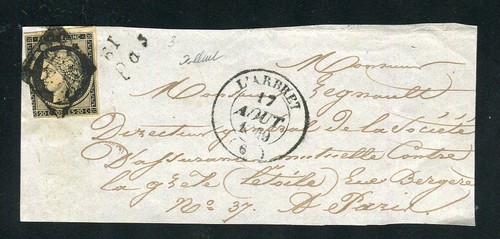 61
Pas
L'ARBRET
17
AOUT
1849
(61)
20 C 20 C
Monsieur
Monsieur Regnault
Directeur général de la Société
D'assurance mutuelle Contre
la grêle (L'étoile) Rue Bergère
No. 37. A Paris